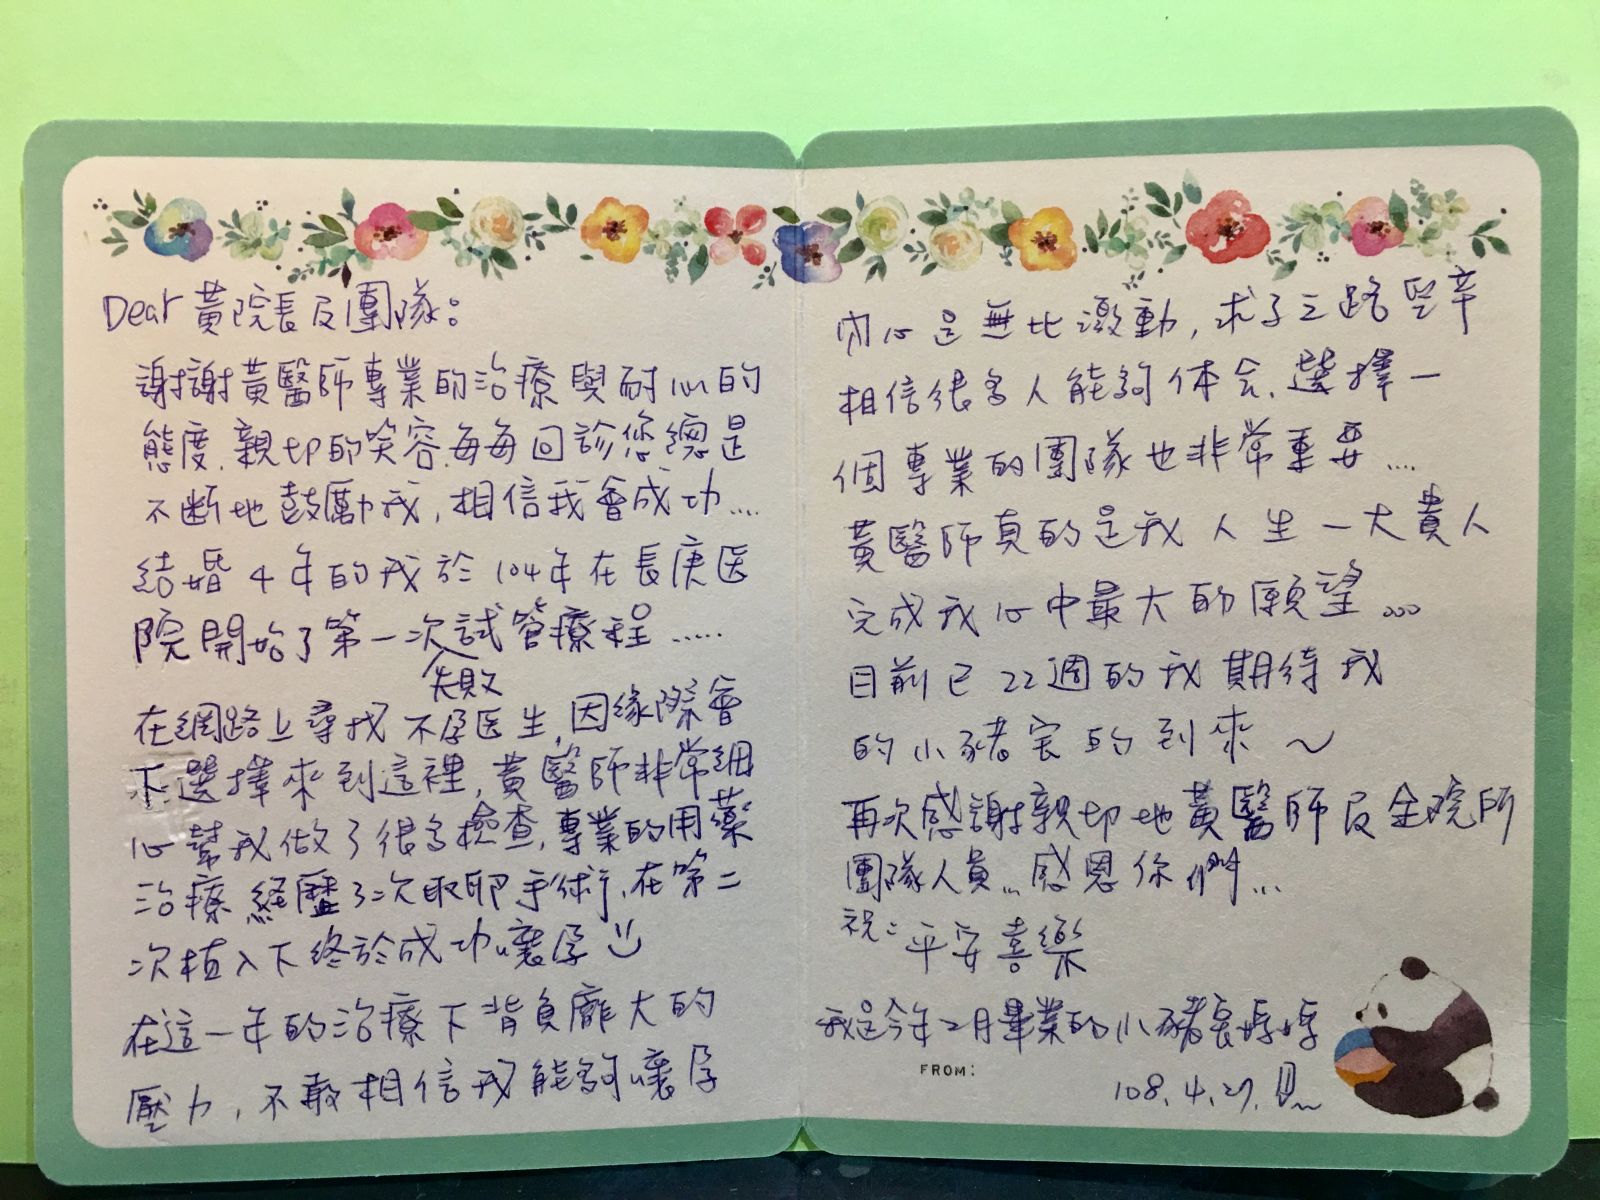 Dear 黃院長及團隊：
謝謝黃醫師專業的治療與耐心的
態度、親切的笑容、每每回診您總是
不斷地鼓勵我，相信我會成功....
結婚4年的我於104年在長庚医
院開始了第一次試管療程.....
失敗
在網路上尋找不孕医生，因緣際會
下選擇來到這裡，黃醫師非常細
心幫我做了很多檢查，專業的用藥
治療，經歷了二次取卵手術，在第二
次植入下終於成功懷孕
在這一年的治療下背負龐大的
壓力，不敢相信我能夠懷孕
內心是無比激動，求子之路坚辛
相信很多人能夠体会，選擇一
個專業的團隊也非常重要....
黃醫師真的是我人生一大貴人
完成我心中最大的願望...
目前已22週的我期待我
的小豬宝的到來～
再次感謝親切地黃醫師及全院所
團隊人員...感恩你們...
祝：平安喜樂
我是今年2月畢業的小豬宝媽媽
FROM:
108.4.27.